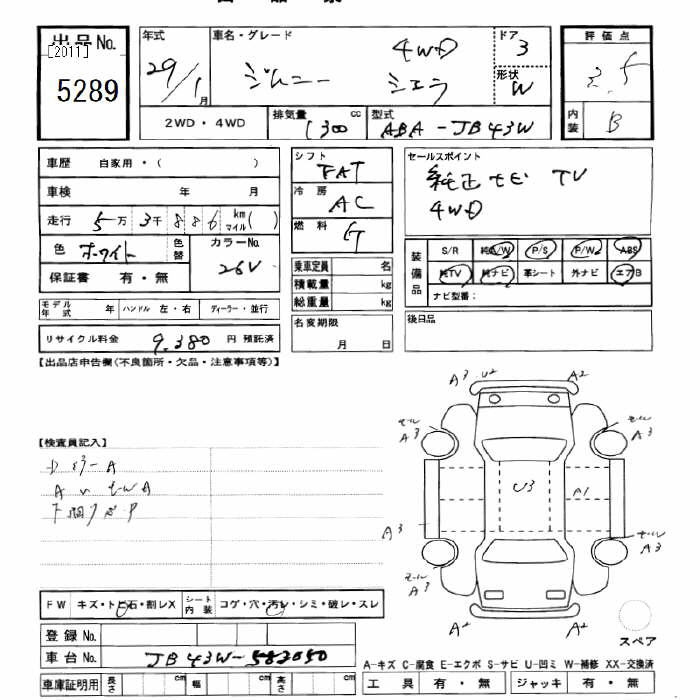 出品No.
[2011]
5289
年式
29/1月
車名・グレード
4WD
ジムニー シエラ
ドア
3
形状
W
評価点
3.5
内装
B
2WD・4WD
排気量
1300 cc
型式
ABA-JB43W
車歴 自家用・( )
車検 年 月
走行 5万 3千 886 km マイル( )
色 ホワイト 色替
カラーNo.
26V
保証書 有・無
モデル年式 年 ハンドル 左・右 ディーラー・並行
リサイクル料金 9,380 円 預託済
シフト
FAT
冷房
AC
燃料
G
乗車定員 名
積載量 kg
総重量 kg
名変期限
月 日
セールスポイント
純正ナビ TV
4WD
装備品
S/R 純A/W P/S P/W ABS
純TV 純ナビ 革シート 外ナビ エアB
ナビ型番:
後日品
【出品店申告欄(不良箇所・欠品・注意事項等)】
【検査員記入】
A3 U2 A2
モール A3
モール A3
U3 A1
A3
モール A3
モール A3
A2 A2
スペア
FW キズ・トビ石・割レX シート内装 コゲ・穴・汚レ・シミ・破レ・スレ
登録No.
車台No. JB43W-582050
車庫証明用 長さ cm 幅 cm 高さ cm
A-キズ C-腐食 E-エクボ S-サビ U-凹ミ W-補修 XX-交換済
工具 有・無 ジャッキ 有・無